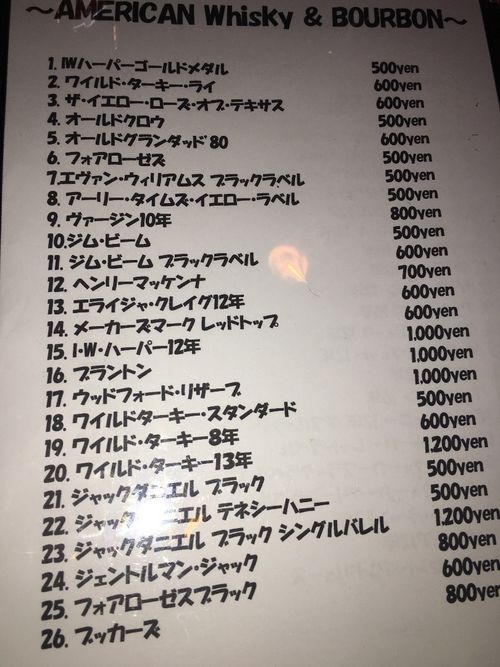 ～AMERICAN Whisky & BOURBON～
1. IWハーパーゴールドメダル 500yen
2. ワイルド・ターキー・ライ 600yen
3. ザ・イエロー・ローズ・オブ・テキサス 600yen
4. オールドクロウ 500yen
5. オールドグランダッド'80 600yen
6. フォアローゼズ 500yen
7.エヴァン・ウィリアムス ブラックラベル 500yen
8. アーリー・タイムズ・イエロー・ラベル 500yen
9. ヴァージン10年 800yen
10.ジム・ビーム 500yen
11. ジム・ビーム ブラックラベル 600yen
12. ヘンリーマッケンナ 700yen
13. エライジャ・クレイグ12年 600yen
14. メーカーズマーク レッドトップ 600yen
15. I・W・ハーパー12年 1,000yen
16. ブラントン 1,000yen
17. ウッドフォード・リザーブ 1,000yen
18. ワイルドターキー・スタンダード 500yen
19. ワイルド・ターキー8年 600yen
20. ワイルド・ターキー13年 1,200yen
21. ジャックダニエル ブラック 500yen
22. ジャックダニエル テネシーハニー 500yen
23. ジャックダニエル ブラック シングルバレル 1,200yen
24. ジェントルマン・ジャック 800yen
25. フォアローゼスブラック 600yen
26. ブッカーズ 800yen